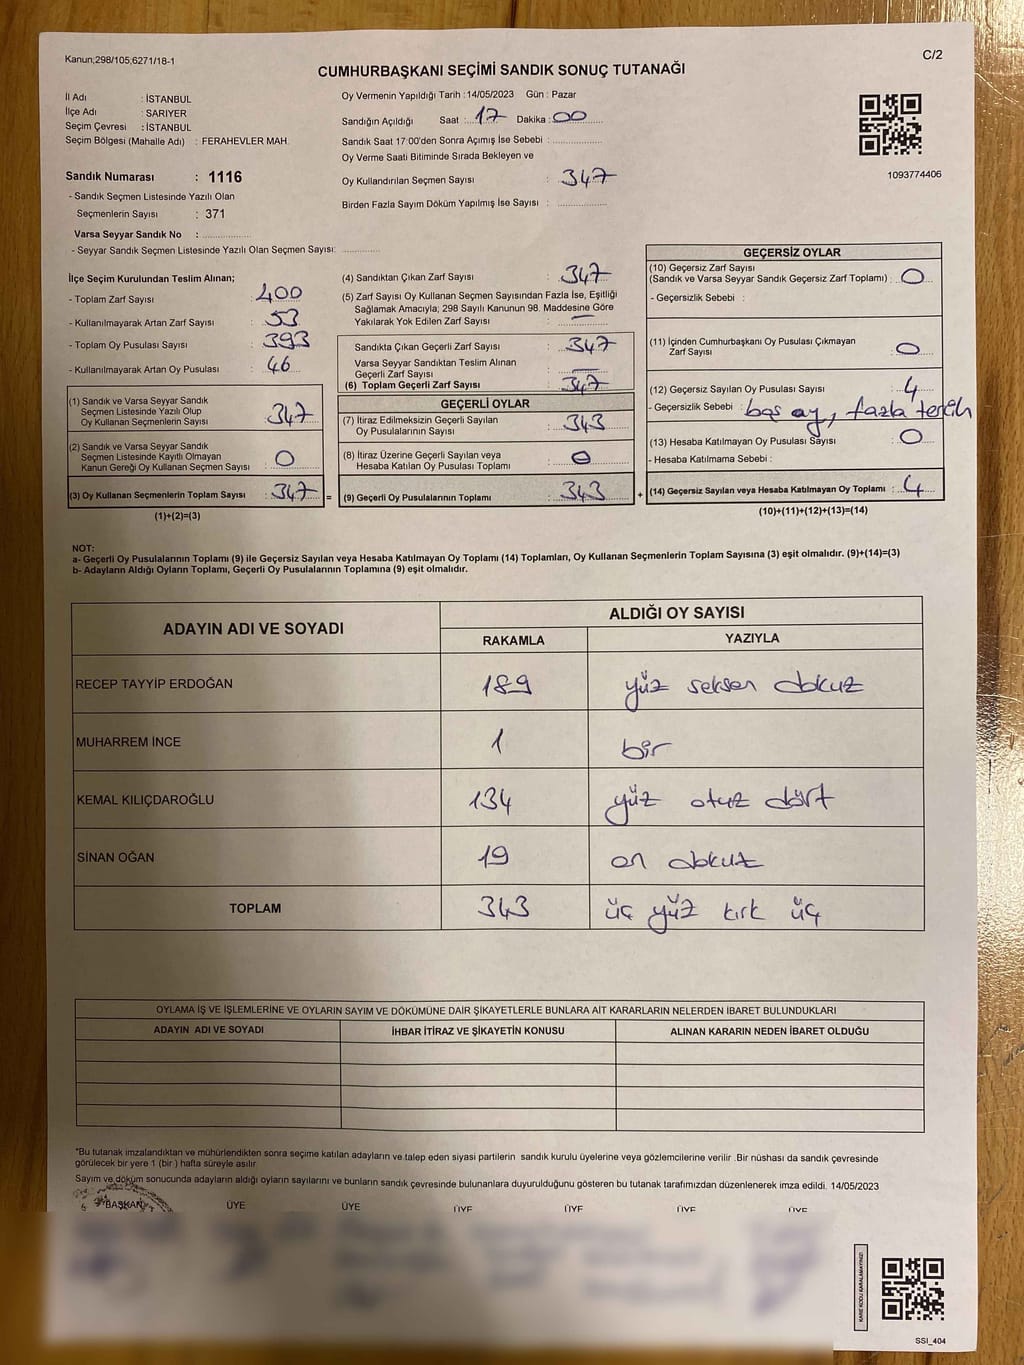 Kanun;298/105,6271/18-1
C/2
CUMHURBAŞKANI SEÇİMİ SANDIK SONUÇ TUTANAĞI
İl Adı : İSTANBUL
İlçe Adı : SARIYER
Seçim Çevresi : İSTANBUL
Seçim Bölgesi (Mahalle Adı) : FERAHEVLER MAH.
Sandık Numarası : 1116
- Sandık Seçmen Listesinde Yazılı Olan
Seçmenlerin Sayısı : 371
Varsa Seyyar Sandık No :
- Seyyar Sandık Seçmen Listesinde Yazılı Olan Seçmen Sayısı:
Oy Vermenin Yapıldığı Tarih :14/05/2023 Gün : Pazar
Sandığın Açıldığı Saat : 17 Dakika : 00
Sandık Saat 17:00'den Sonra Açımış İse Sebebi :
Oy Verme Saati Bitiminde Sırada Bekleyen ve
Oy Kullandırılan Seçmen Sayısı : 347
Birden Fazla Sayım Döküm Yapılmış İse Sayısı :
1093774406
İlçe Seçim Kurulundan Teslim Alınan;
- Toplam Zarf Sayısı : 400
- Kullanılmayarak Artan Zarf Sayısı : 53
- Toplam Oy Pusulası Sayısı : 393
- Kullanılmayarak Artan Oy Pusulası : 46
(1) Sandık ve Varsa Seyyar Sandık
Seçmen Listesinde Yazılı Olup
Oy Kullanan Seçmenlerin Sayısı : 347
(2) Sandık ve Varsa Seyyar Sandık
Seçmen Listesinde Kayıtlı Olmayan
Kanun Gereği Oy Kullanan Seçmen Sayısı : 0
(3) Oy Kullanan Seçmenlerin Toplam Sayısı : 347 =
(1)+(2)=(3)
(4) Sandıktan Çıkan Zarf Sayısı : 347
(5) Zarf Sayısı Oy Kullanan Seçmen Sayısından Fazla İse, Eşitliği
Sağlamak Amacıyla, 298 Sayılı Kanunun 98. Maddesine Göre
Yakılarak Yok Edilen Zarf Sayısı : —
Sandıkta Çıkan Geçerli Zarf Sayısı : 347
Varsa Seyyar Sandıktan Teslim Alınan
Geçerli Zarf Sayısı : —
(6) Toplam Geçerli Zarf Sayısı : 347
GEÇERLİ OYLAR
(7) İtiraz Edilmeksizin Geçerli Sayılan
Oy Pusulalarının Sayısı : 343
(8) İtiraz Üzerine Geçerli Sayılan veya
Hesaba Katılan Oy Pusulası Toplamı : 0
(9) Geçerli Oy Pusulalarının Toplamı : 343 +
GEÇERSİZ OYLAR
(10) Geçersiz Zarf Sayısı
(Sandık ve Varsa Seyyar Sandık Geçersiz Zarf Toplamı) : 0
- Geçersizlik Sebebi :
(11) İçinden Cumhurbaşkanı Oy Pusulası Çıkmayan
Zarf Sayısı : 0
(12) Geçersiz Sayılan Oy Pusulası Sayısı : 4
- Geçersizlik Sebebi : boş oy, fazla tercih
(13) Hesaba Katılmayan Oy Pusulası Sayısı : 0
- Hesaba Katılmama Sebebi :
(14) Geçersiz Sayılan veya Hesaba Katılmayan Oy Toplamı : 4
(10)+(11)+(12)+(13)=(14)
NOT:
a- Geçerli Oy Pusulalarının Toplamı (9) ile Geçersiz Sayılan veya Hesaba Katılmayan Oy Toplamı (14) Toplamları, Oy Kullanan Seçmenlerin Toplam Sayısına (3) eşit olmalıdır. (9)+(14)=(3)
b- Adayların Aldığı Oyların Toplamı, Geçerli Oy Pusulalarının Toplamına (9) eşit olmalıdır.
ADAYIN ADI VE SOYADI ALDIĞI OY SAYISI
RAKAMLA YAZIYLA
RECEP TAYYİP ERDOĞAN 189 yüz seksen dokuz
MUHARREM İNCE 1 bir
KEMAL KILIÇDAROĞLU 134 yüz otuz dört
SİNAN OĞAN 19 on dokuz
TOPLAM 343 üç yüz kırk üç
OYLAMA İŞ VE İŞLEMLERİNE VE OYLARIN SAYIM VE DÖKÜMÜNE DAİR ŞİKAYETLERLE BUNLARA AİT KARARLARIN NELERDEN İBARET BULUNDUKLARI
ADAYIN ADI VE SOYADI İHBAR İTİRAZ VE ŞİKAYETİN KONUSU ALINAN KARARIN NEDEN İBARET OLDUĞU
"Bu tutanak imzalandıktan ve mühürlendikten sonra seçime katılan adayların ve talep eden siyasi partilerin sandık kurulu üyelerine veya gözlemcilerine verilir .Bir nüshası da sandık çevresinde
görülecek bir yere 1 (bir ) hafta süreyle asılır
Sayım ve döküm sonucunda adayların aldığı oyların sayılarını ve bunların sandık çevresinde bulunanlara duyurulduğunu gösteren bu tutanak tarafımızdan düzenlenerek imza edildi. 14/05/2023
BAŞKAN ÜYE ÜYE ÜYE ÜYE ÜYE ÜYE
KARE KODU KARALAMAYINIZ!
SSI_404